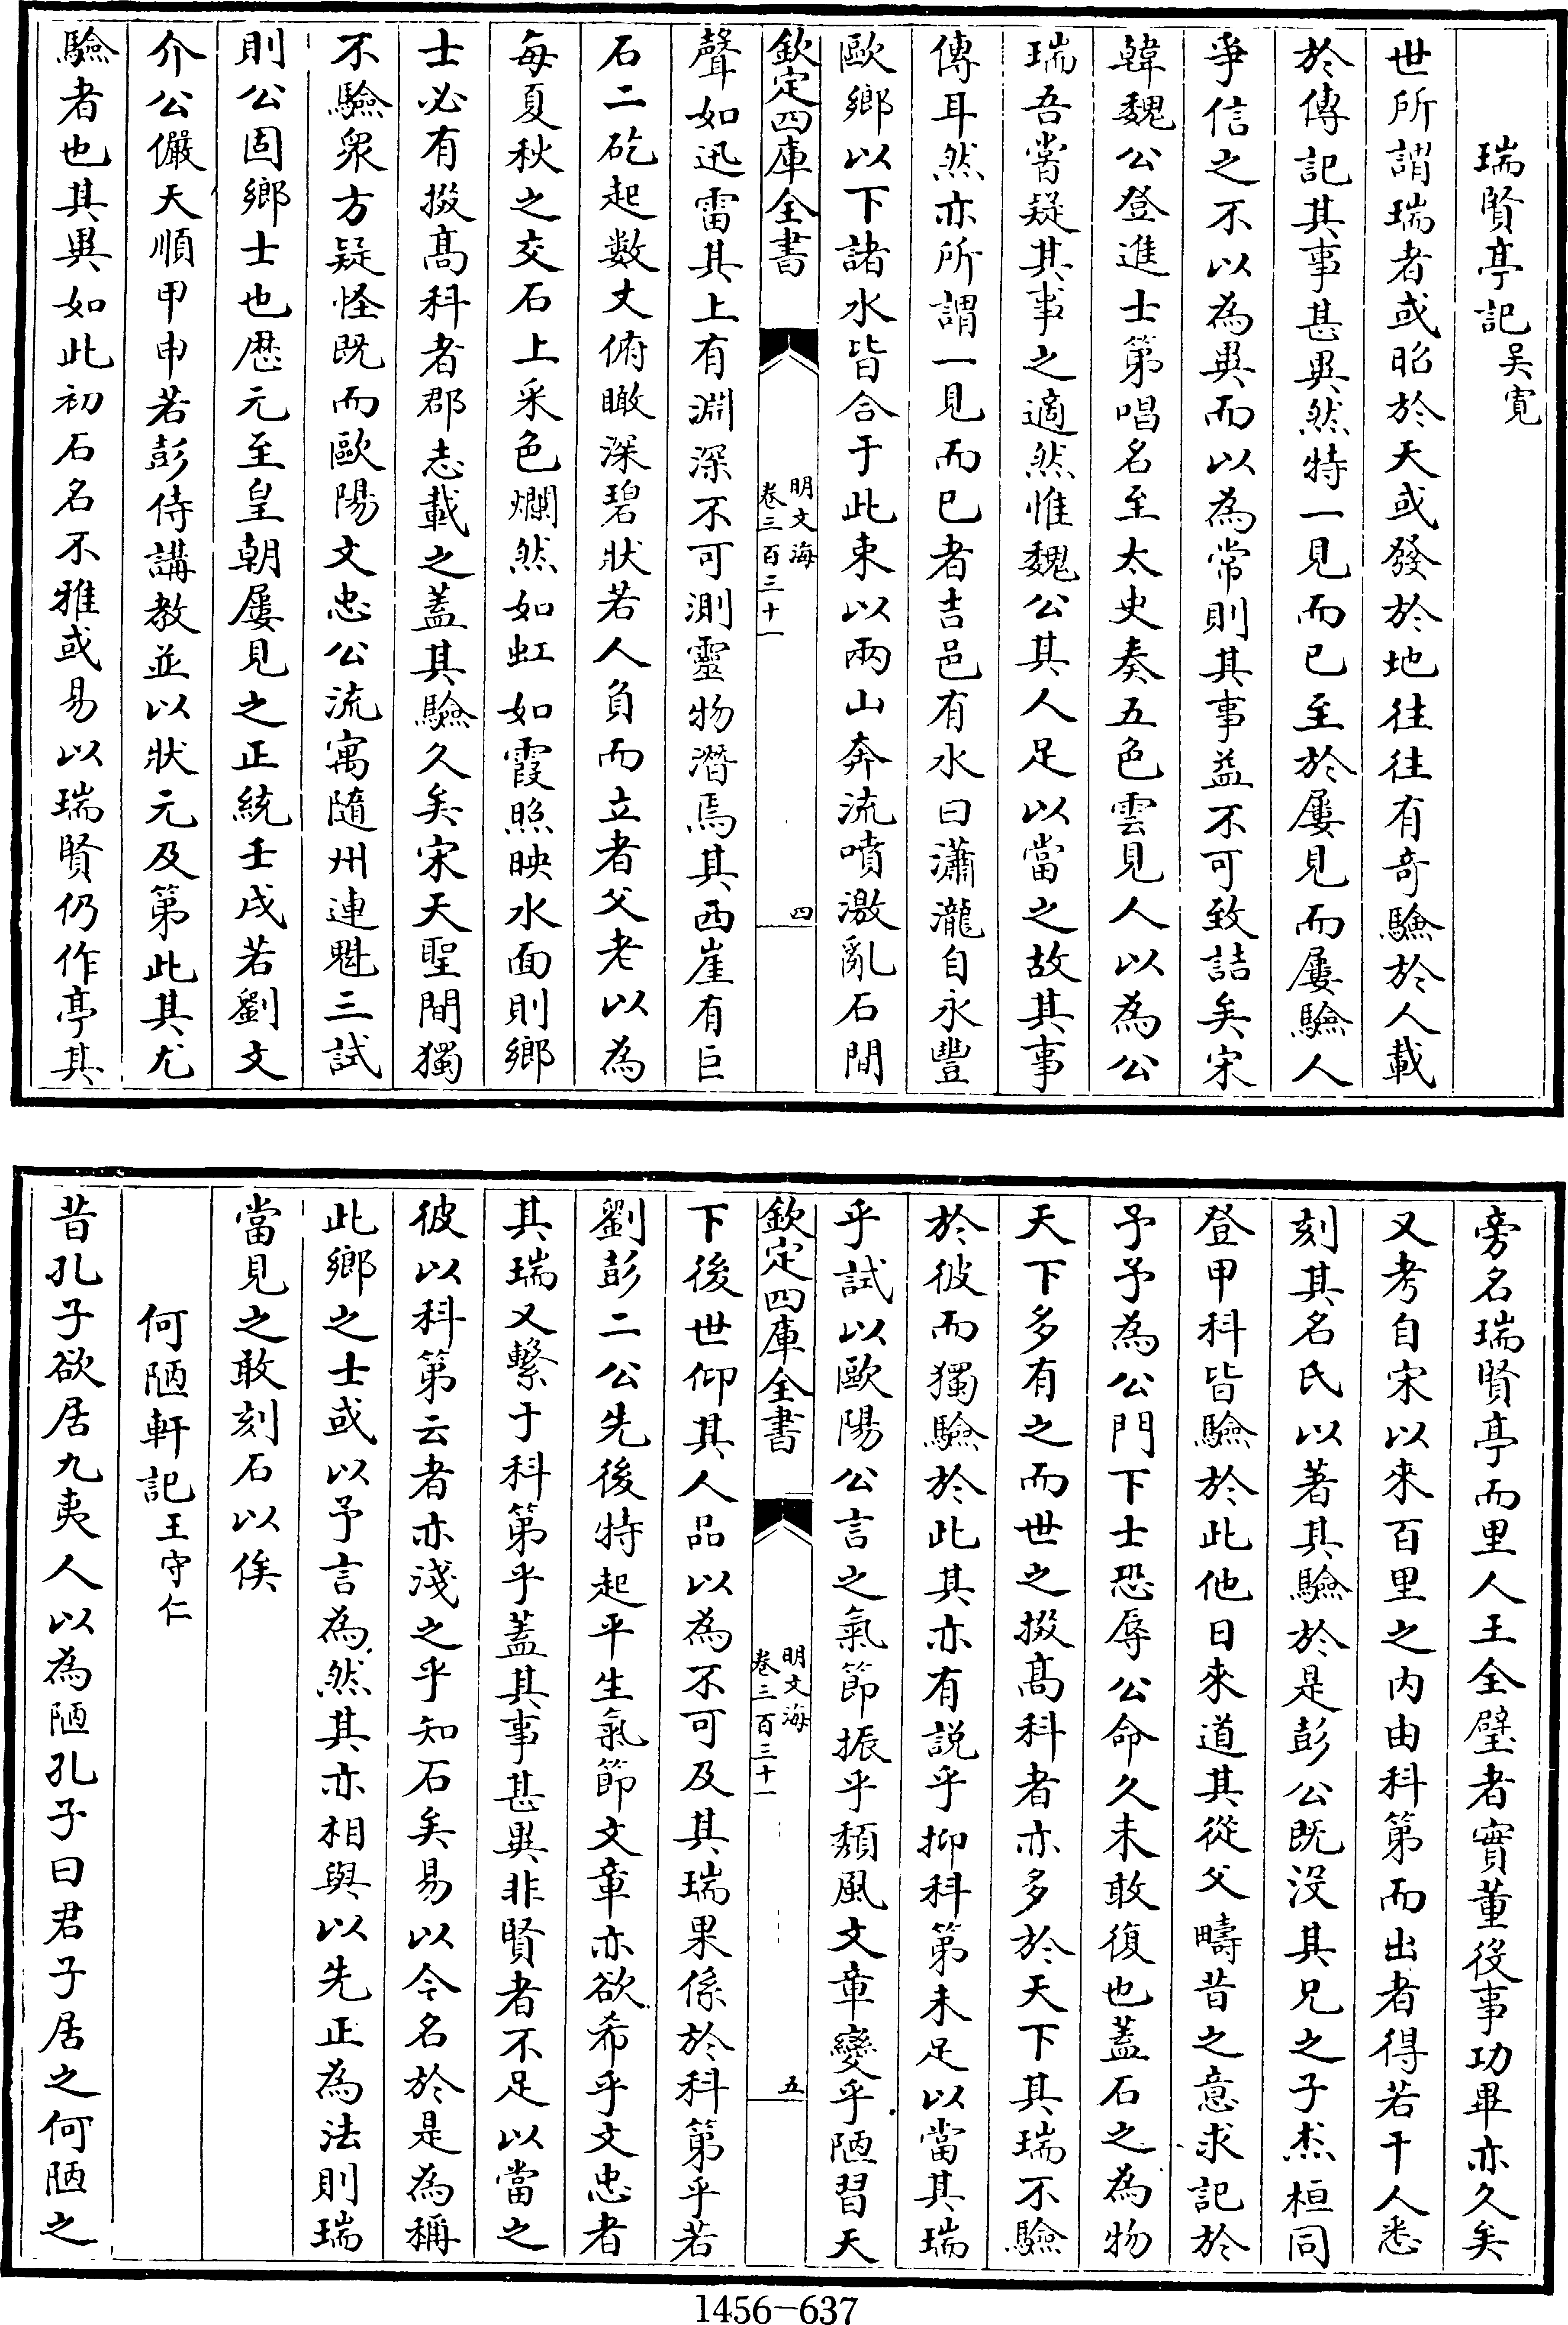 瑞賢亭記吴寛
世所謂瑞者或昭於天或發於地往往有奇驗於人載
於傳記其事甚異然特一見而已至於屢見而屢驗人
爭信之不以為異而以為常則其事益不可致詰矣宋
韓魏公登進士第唱名至太史奏五色雲見人以為公
瑞吾嘗疑其事之適然惟魏公其人足以當之故其事
傳耳然亦所謂一見而已者吉邑有水曰瀟瀧自永豐
歐鄉以下諸水皆合于此束以兩山奔流噴激亂石間
欽定四庫全書
明文海
卷三百三十一
四
聲如迅雷其上有淵深不可測靈物潛焉其西崖有巨
石二矻起数丈俯瞰深碧狀若人負而立者父老以為
每夏秋之交石上釆色爛然如虹如霞照映水面則鄉
士必有掇髙科者郡志載之蓋其驗久矣宋天聖間獨
不驗衆方疑怪既而歐陽文忠公流寓隨州連魁三試
則公固鄉士也歴元至皇朝屢見之正統壬戌若劉文
介公儼天順甲申若彭侍講教並以狀元及第此其尤
驗者也其異如此初石名不雅或易以瑞賢仍作亭其
旁名瑞賢亭而里人王全璧者實董役事功畢亦久矣
又考自宋以來百里之内由科第而出者得若干人悉
刻其名氏以著其驗於是彭公既沒其兄之子杰桓同
登甲科皆驗於此他日來道其從父疇昔之意求記於
予予為公門下士恐辱公命久未敢復也蓋石之為物
天下多有之而世之掇髙科者亦多於天下其瑞不驗
於彼而獨驗於此其亦有説乎抑科第未足以當其瑞
乎試以歐陽公言之氣節振乎頽風文章變乎陋習天
欽定四庫全書
明文海
卷三百三十一
五
下後世仰其人品以為不可及其瑞果係於科第乎若
劉彭二公先後特起平生氣節文章亦欲希乎文忠者
其瑞又繫于科第乎蓋其事甚異非賢者不足以當之
彼以科第云者亦淺之乎知石矣易以今名於是為稱
此鄉之士或以予言為然其亦相與以先正為法則瑞
當見之敢刻石以俟
何陋軒記王守仁
昔孔子欲居九夷人以為陋孔子曰君子居之何陋之
1456-637